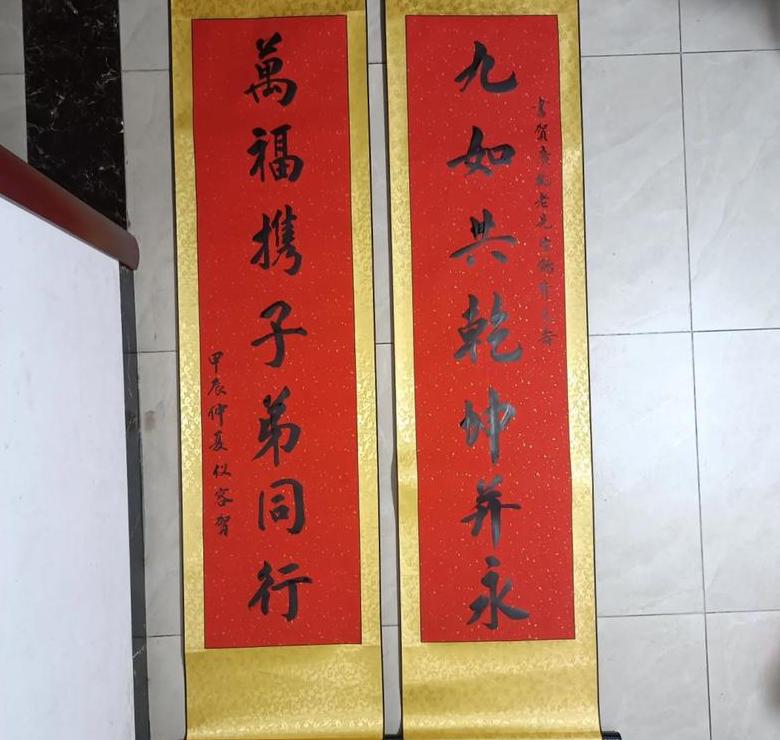 書賀老先生壽
九如共乾坤并永
萬福携子弟同行
甲辰仲夏仪容贺